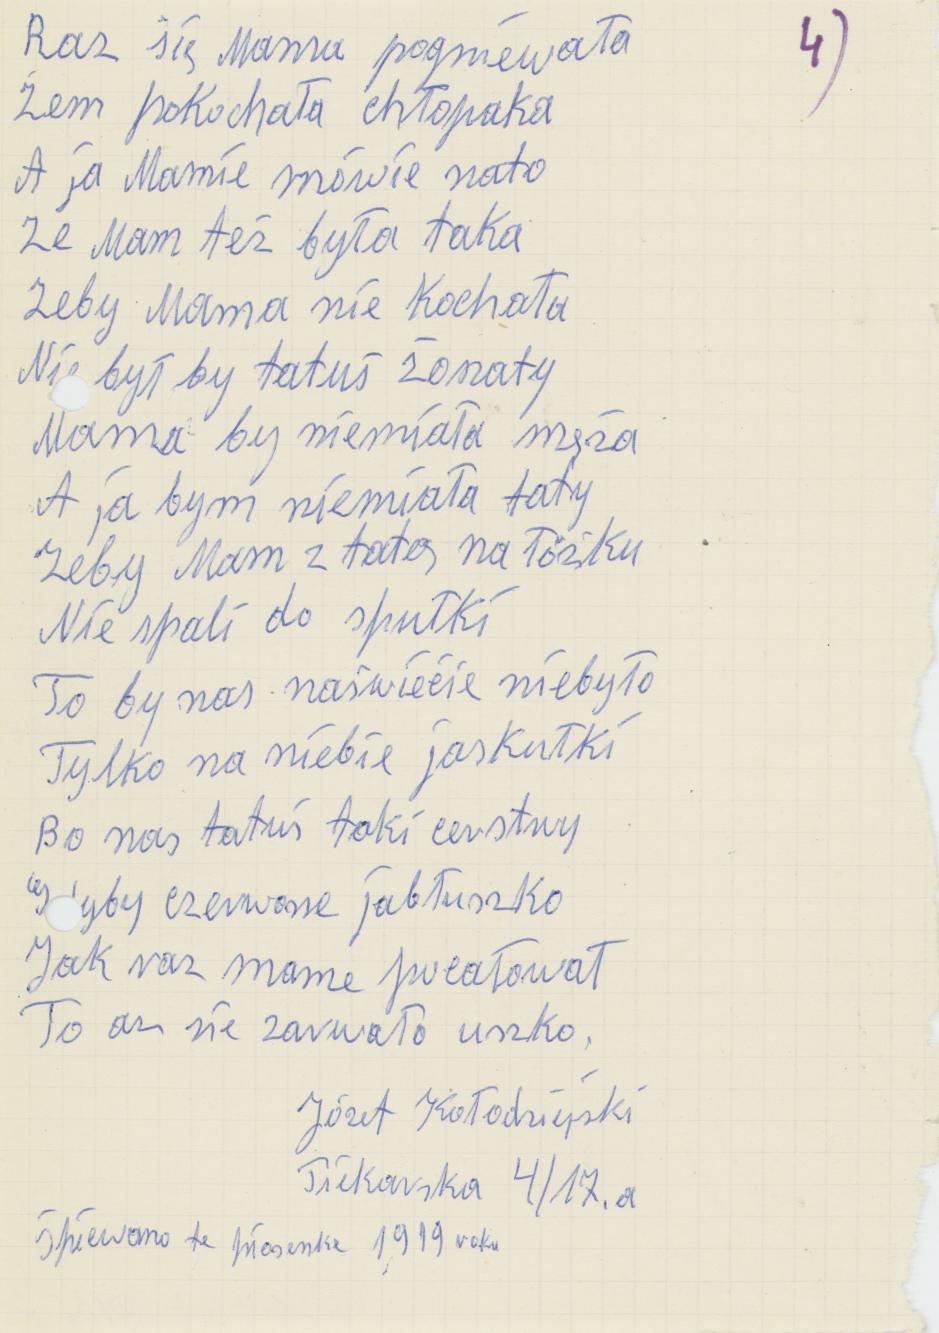 4)
Raz się Mama pogniewała
Żem pokochała chłopaka
A ja Mamie mówie nato
Że Mam też była taka
Żeby Mama nie Kochała
Nie był by tatuś Żonaty
Mama by niemiała męża
A ja bym niemiała taty
Żeby Mam z tatą na łóżku
Nie spali do spułki
To by nas naświécie niebyło
Tylko na niebie jaskułki
Bo nas tatuś taki cerstwy
czerwone jabłuszko
Jak raz mame pocałował
To az sie zarwało uszko.
Józef Kołodziejski
4/17.a
Śpiewano te piosenke 1919 roku